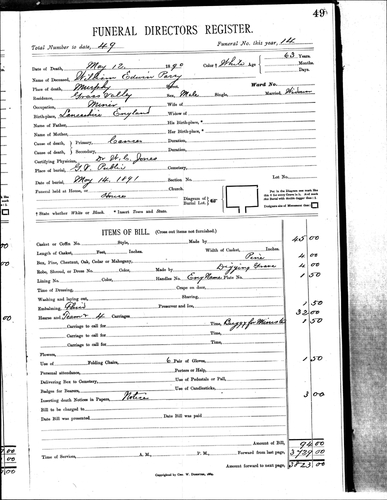 49
FUNERAL DIRECTORS REGISTER.
Total Number to date, 49 Funeral No. this year, 14
Date of Death, May 12, 1890 Color White Age 63 Years. Months. Days.
Name of Deceased, William Edwin Parry
Place of death, Murphy Ward No.
Residence, Grass Valley Sex, Male Single, Married, Widower
Occupation, Miner Wife of
Place of birth, Lancashire England Widow of
Name of Father, His Birth-place,
Name of Mother, Her Birth-place,
Cause of death, Primary, Cancer Duration,
Cause of death, Secondary, Duration,
Certifying Physician, Dr W. C. Jones
Place of burial, G.V. Public Cemetery,
Date of burial, May 14, 1891 Section No. Lot No.
Funeral held at House, or House Church
Diagram of Burial Lot
† State whether White or Black. ‡ Insert Town and State.
ITEMS OF BILL. (Cross out items not furnished.)
Casket or Coffin No. Style, Made by 45 00
Length of Casket, Feet, Inches. Width of Casket, Inches.
Box, Pine, Chestnut, Oak, Cedar or Mahogany, Pine 4 00
Robe, Shroud, or Dress No. Color, Made by Digging Grave 4 00
Lining No. Color, Handles No. Plate No. 1 50
Time of Dressing, Crape on door,
Washing and laying out, Shaving,
Embalming, Preserver and Ice, 1 50
Hearse and Team & 4 Carriages 32 00
Carriage to call for Time, 1 50
Carriage to call for Time,
Carriage to call for Time,
Flowers,
Use of Folding Chairs, 6 Pair of Gloves, 1 50
Personal attendance, Porters or Help,
Delivering Box to Cemetery, Use of Pedestals or Pall,
Badges for Bearers, Use of Candlesticks,
Inserting death Notices in Papers, Notice 3 00
Bill to be charged to
Date Bill was presented Date Bill was paid
Amount of Bill, 94 00
Time of Services, A. M., P. M., Forward from last page, 3729 00
Amount forward to next page, 3823 00
Copyrighted by Geo. W.